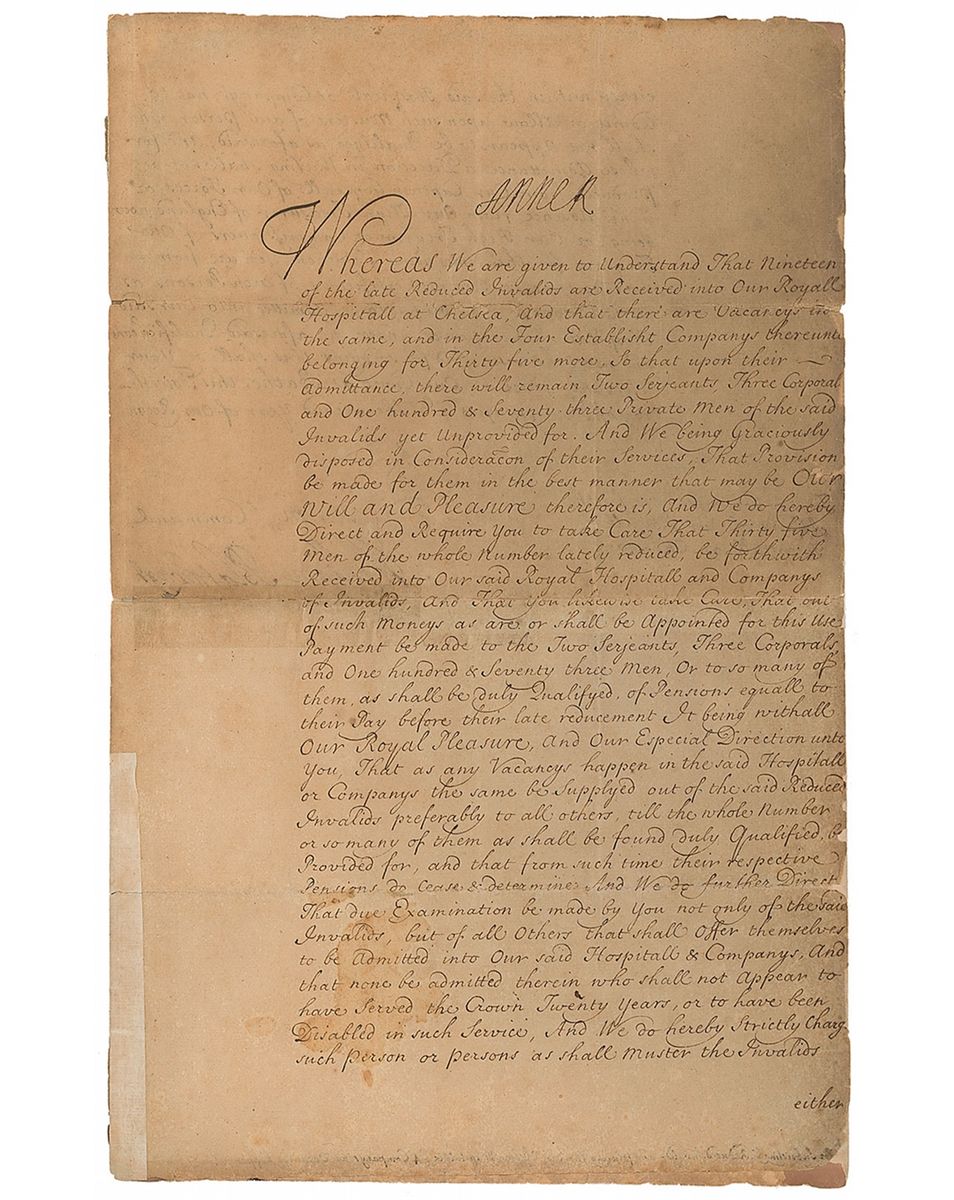 ANNE R
Whereas We are given to Understand That Nineteen
of the late Reduced Invalids are Received into Our Royall
Hospitall at Chelsea, And that there are Vacancys in
the same, and in the Four Establisht Companys thereunto
belonging for Thirty five more, So that upon their
Admittance, there will remain Two Serjeants Three Corporal
and One hundred & Seventy three Private Men of the said
Invalids yet Unprovided for. And We being Graciously
disposed in Consideracon of their Services, That Provision
be made for them in the best manner that may be Our
Will and Pleasure therefore is, And We do hereby
Direct and Require You to take Care That Thirty five
Men of the whole Number lately reduced, be forthwith
Received into Our said Royal Hospitall and Companys
of Invalids, And That you likewise take Care, That out
of such Moneys as are or shall be Appointed for this Use
Payment be made to the Two Serjeants, Three Corporals,
and One hundred & Seventy three Men, Or to so many of
them, as shall be duly Qualifyed, of Pensions equall to
their Pay before their late reducement It being withall
Our Royal Pleasure, And Our Especial Direction unto
You, That as any Vacancys happen in the said Hospitall
or Companys the same be Supplyed out of the said Reduced
Invalids preferably to all others, till the whole Number
or so many of them as shall be found duly Qualified, be
Provided for, and that from such time their respective
Pensions do Cease & determine And We do further Direct
That due Examination be made by You not only of the said
Invalids, but of all Others that shall Offer themselves
to be Admitted into Our said Hospitall & Companys, And
that none be admitted therein who shall not Appear to
have Served the Crown Twenty Years, or to have been
Disabled in such Service, And We do hereby Strictly Charg
such Person or Persons as shall Muster the Invalids
either